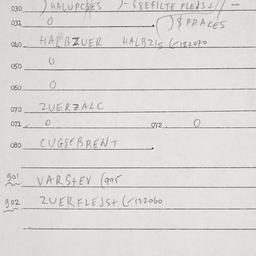 030 ) HALUPCZES )- GREFILTE FLEJSH // -
031 0 . ) & PRAKES
040 HALBZUER HALBZIS (✓122070
050 0
060 0
070 ZUERZALC
071 0 072 0
080 CUGGEBRENT .
901 VARSHEV (995
902 ZUERFLEJSH (✓122060